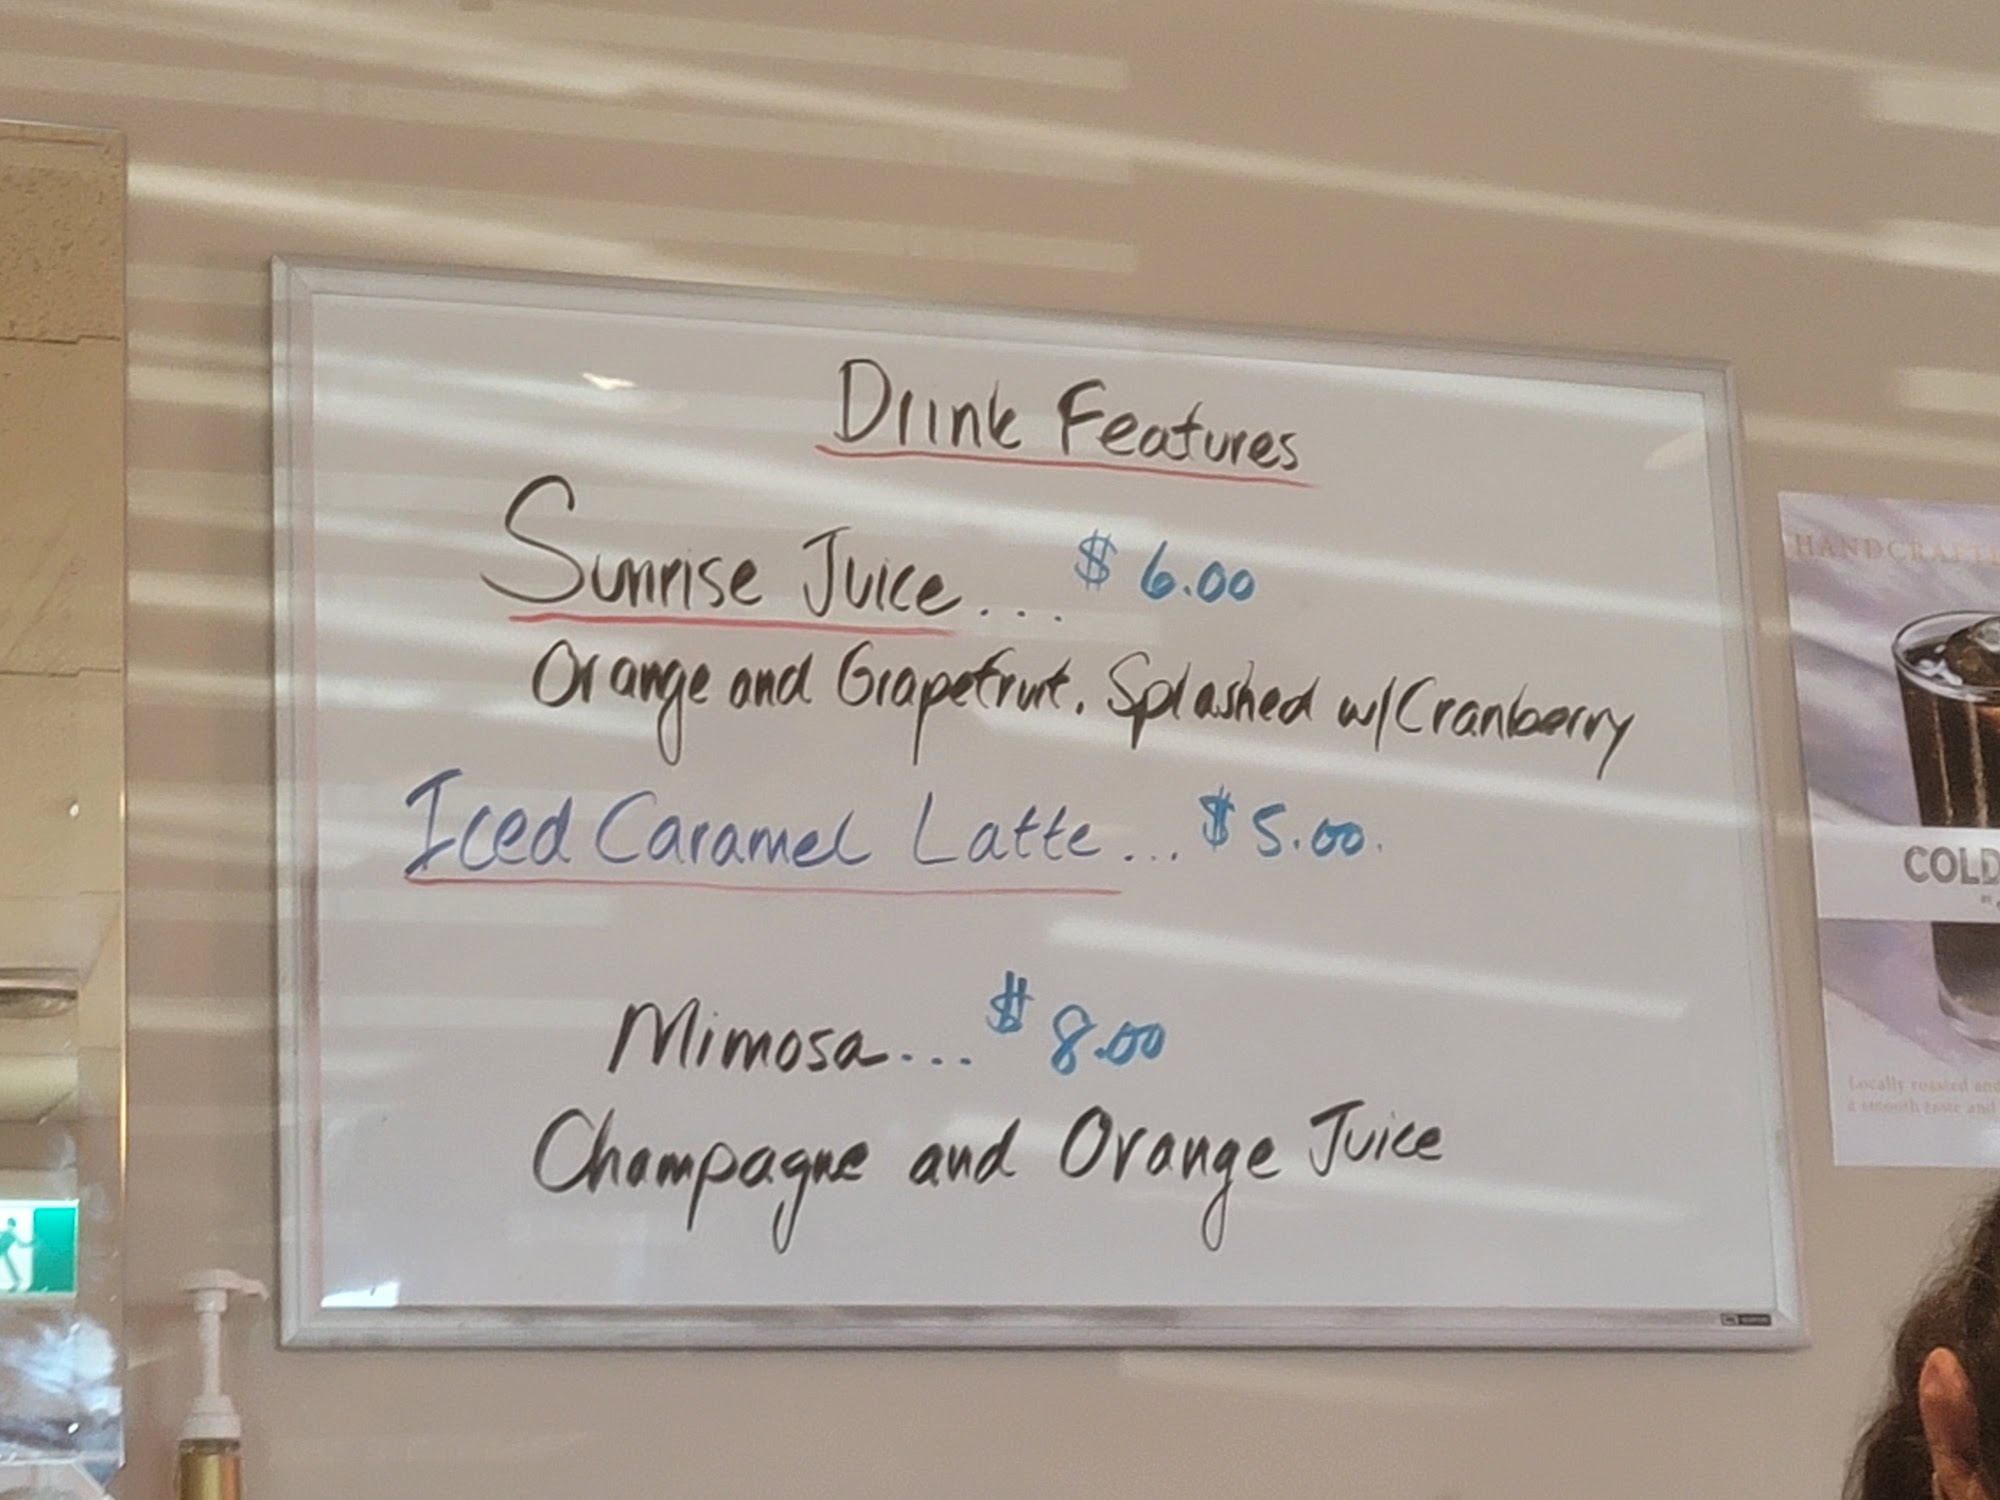 Drink Features
Sunrise Juice... $6.00
Orange and Grapefruit. Splashed w/Cranberry
Iced Caramel Latte... $5.00.
Mimosa... $8.00
Champagne and Orange Juice
HANDCRAFTE
COLD
Locally roasted and
a smooth taste and